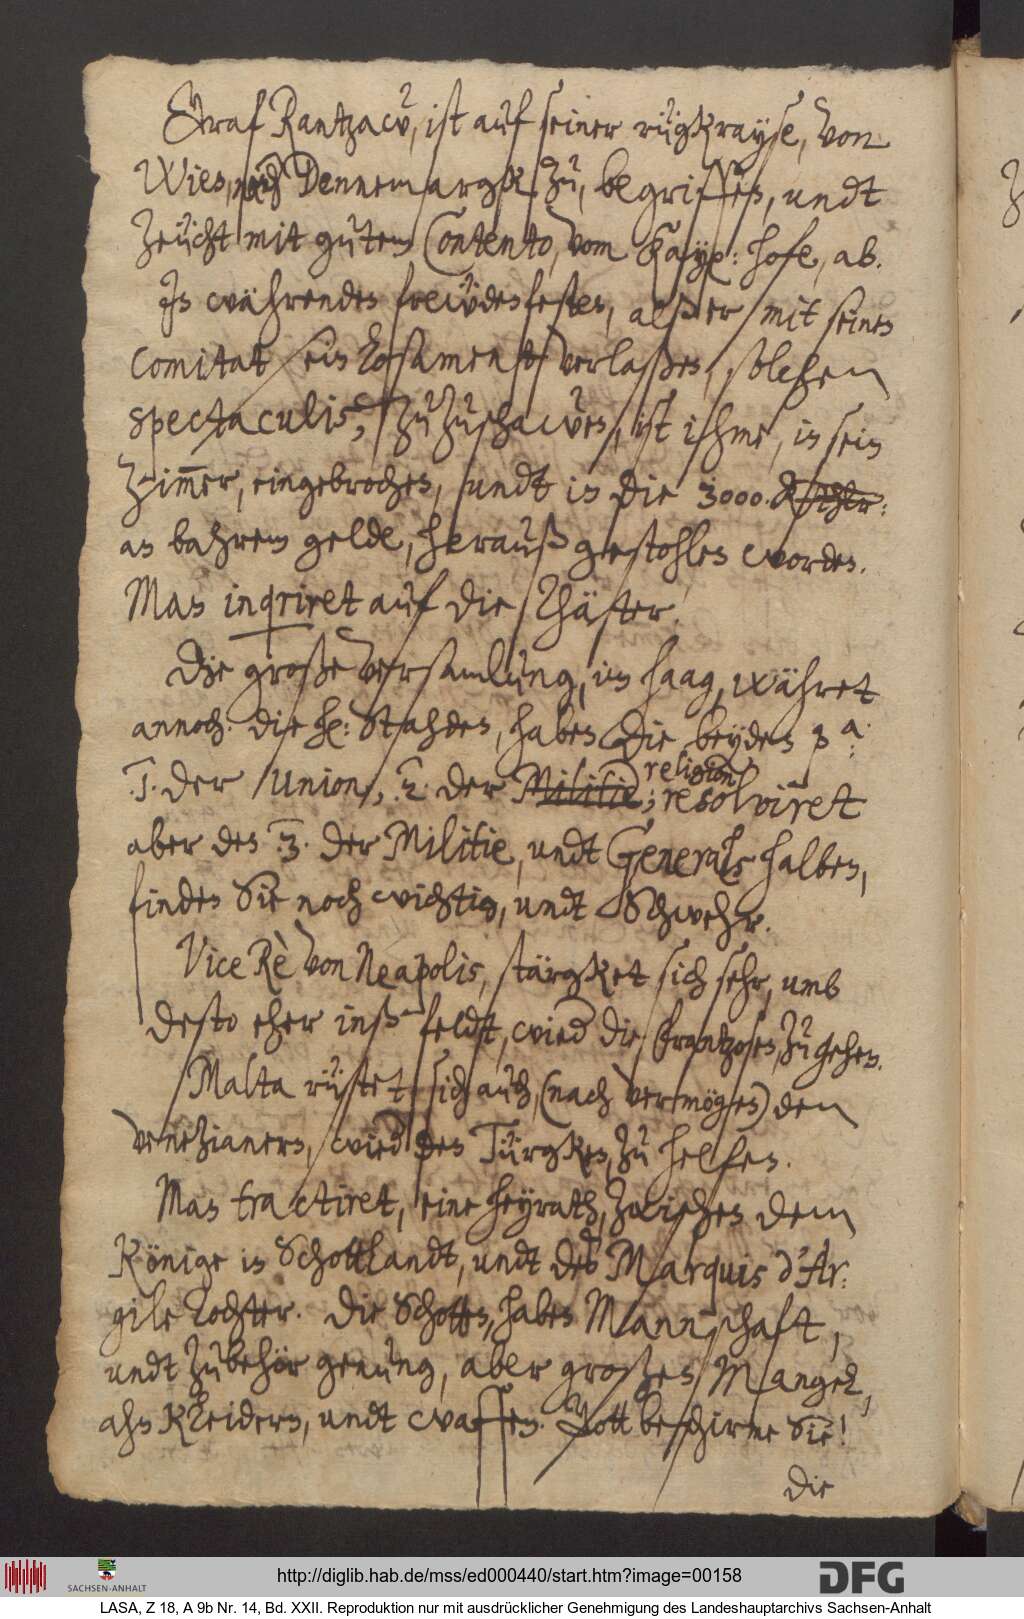 Graf Rantzaw, ist auf seiner rügkrayse, von
Wien, nach Dennemargk zu, begriffen, undt
zeücht mit gutem Contento, vom Kayß: hofe, ab.
In währenden freẅdenfesten, alß er mit seinen
Comitat sein Losament verlaßen, solchen
spectaculis, zuzuschawen, ist ihme, in sein
Zimmer, eingebrochen, undt in die 3000. Rthlr:
an bahrem gelde, herauß gestohlen worden.
Man inqriret auf die Thäter.
Die große versamlung, im Haag, währet
annoch. die H: Stahden, haben die beyden pa:
.1. der Union, .2. der Militie; religion resolviret
aber den .3. der Militie, undt Generals halben,
finden Sie noch wichtig, undt Schwehr.
Vice Rè von Neapolis, stärgket sich sehr, umb
desto eher inß feldt, wied die Frantzosen, zu gehen.
Malta rüstet sich auch, (nach vermögen) den
Venezianern, wied den Türgken, zu helfen.
Man tractiret, eine heyrath, zwischen dem
Könige in Schottlandt, undt des Marquis d'Ar:
gile Tochter. Die Schotten, haben Mannschaft,
undt zubehör genung, aber großen Mangel,
ahn Kleidern, undt waffen. Gott beschirme Sie!
Die
http://diglib.hab.de/mss/ed000440/start.htm?image=00158
SACHSEN-ANHALT
DFG
LASA, Z 18, A 9b Nr. 14, Bd. XXII. Reproduktion nur mit ausdrücklicher Genehmigung des Landeshauptarchivs Sachsen-Anhalt